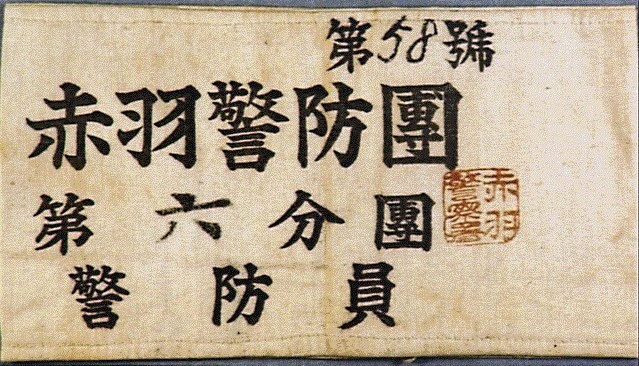 第58號
赤羽警防團
第六分團
警防員
赤羽
警察署